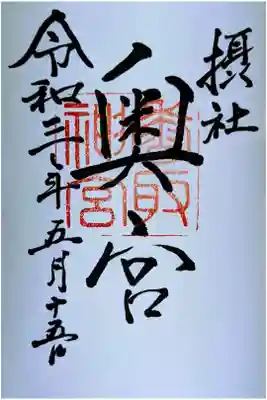 摂社
奥宮
香取
神宮
令和三年五月十五日